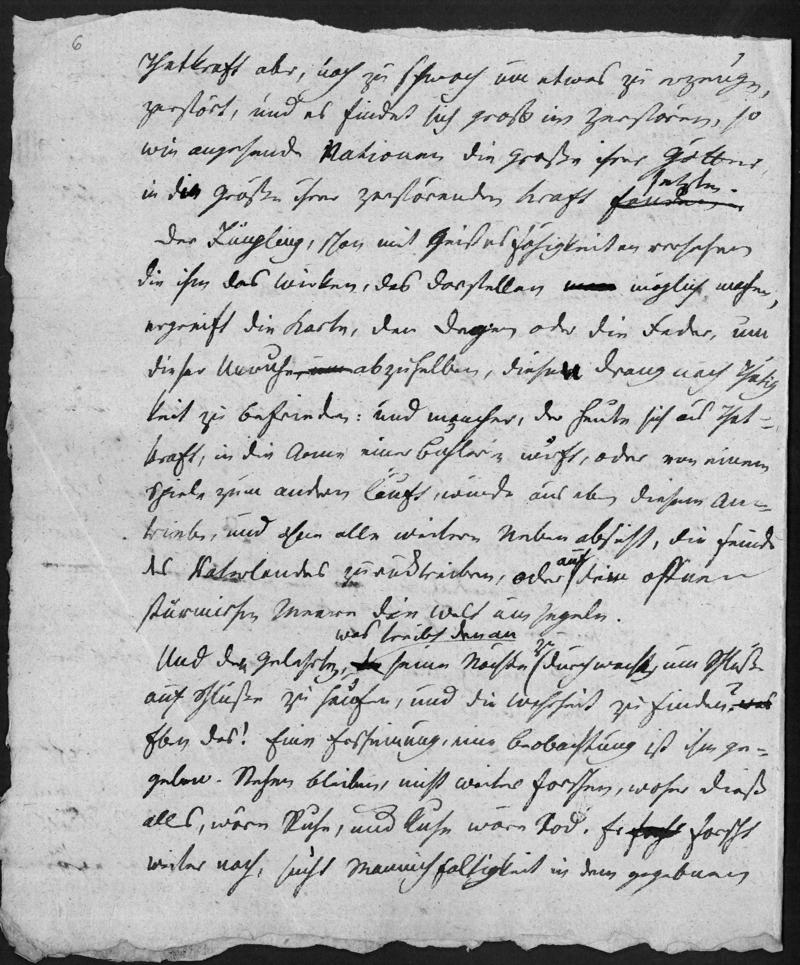 6
Thatkraft aber, noch zu schwach um etwas zu erzeugen,
zerstört, und es findet sich groß im zerstören, so
wie angehende Nationen die Größe ihrer Götter,
in die Größe ihrer zerstörenden Kraft setzten.
Der Jüngling, schon mit Geistesfähigkeiten versehen
die ihm das wirken, das darstellen möglich machen,
ergreift die Karte, den Degen oder die Feder, um
dieser Unruhe abzuhelfen, diesen Drang nach Thätig
keit zu befrieden: und mancher, der heute sich aus That-
kraft, in die Arme einer Buhlerin wirft, oder von einem
Spiele zum andern läuft, würde aus eben diesem An-
triebe, und ohne alle weitere Nebenabsicht, die Feinde
des Vaterlandes zurücktreiben, oder auf dem offnen
stürmischen Meere die Welt umsegeln.
was treibt denan
Und den Gelehrten, seine Nächte zu durchwachen, um Schlüße
auf Schlüße zu häufen, und die Wahrheit zu finden?
Eben das! Eine Erscheinung, eine Beobachtung ist ihm ge-
geben. Stehen bleiben, nicht weiter forschen, woher dieß
alles, wäre Ruhe, und Ruhe wäre Tod. Er forscht
weiter nach, sucht Mannichfaltigkeit in dem gegebenen